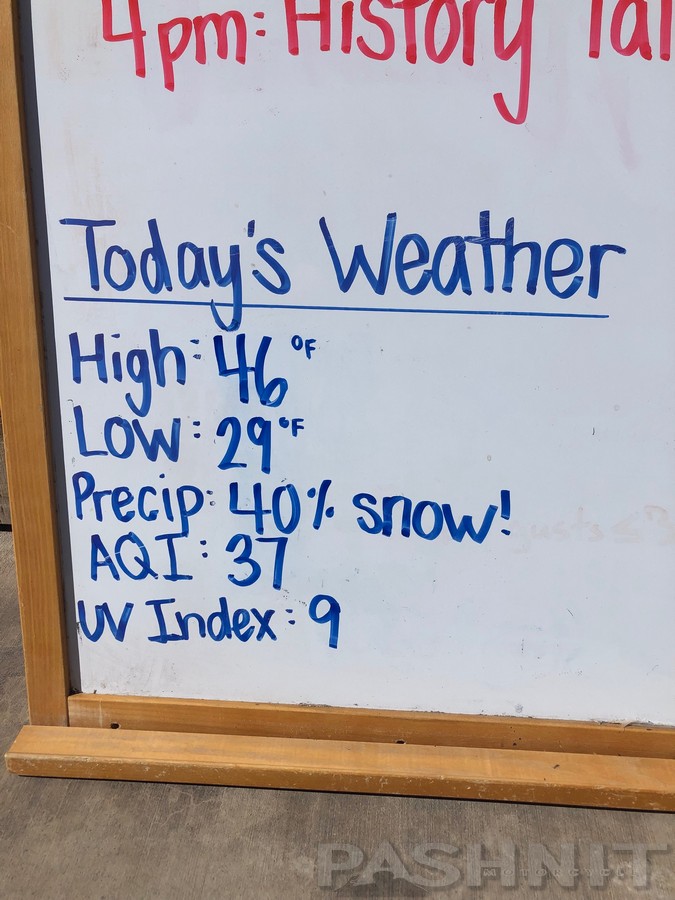 4pm: History Tal
Today's Weather
High: 46 °F
Low: 29 °F
Precip: 40% snow!
AQI: 37
UV Index: 9
PASHNIT